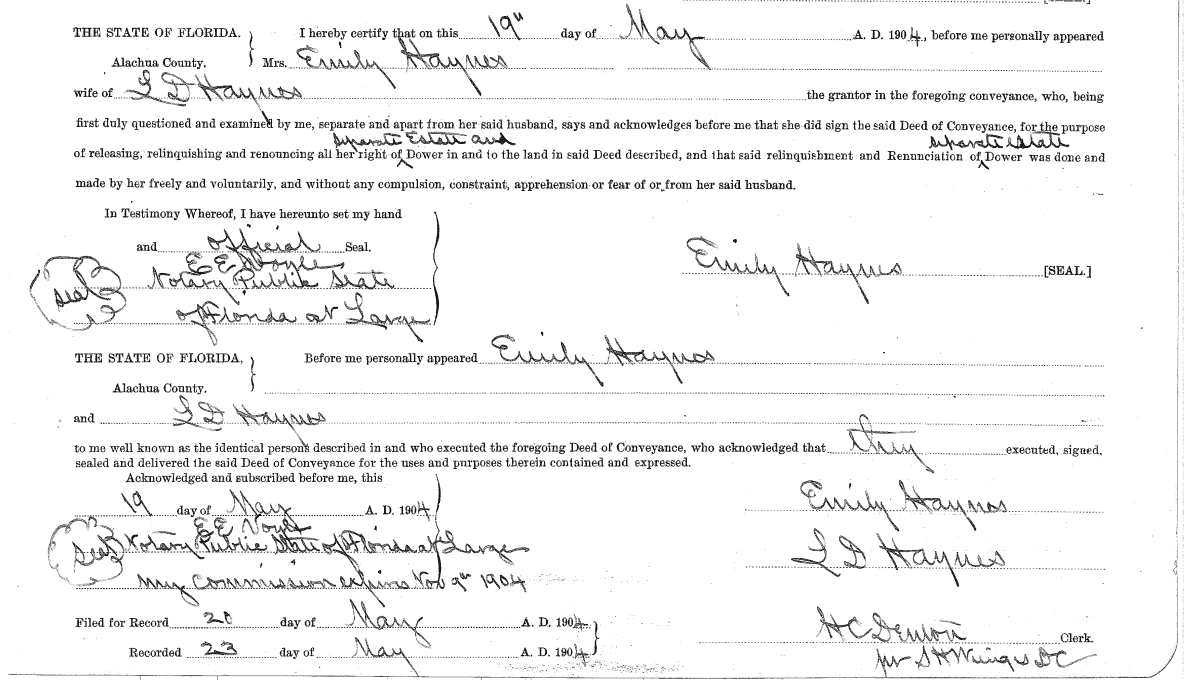 THE STATE OF FLORIDA. } I hereby certify that on this 19" day of May A. D. 1904, before me personally appeared
Alachua County. Mrs. Emily Haynes
wife of L D Haynes the grantor in the foregoing conveyance, who, being
first duly questioned and examined by me, separate and apart from her said husband, says and acknowledges before me that she did sign the said Deed of Conveyance, for the purpose
separate Estate and separate estate
of releasing, relinquishing and renouncing all her right of ^ Dower in and to the land in said Deed described, and that said relinquishment and Renunciation of ^ Dower was done and
made by her freely and voluntarily, and without any compulsion, constraint, apprehension or fear of or from her said husband.
In Testimony Whereof, I have hereunto set my hand
and official Seal.
E E Voyle
Emily Haynes [SEAL.]
Seal Notary Public State
of Florida at Large
THE STATE OF FLORIDA, } Before me personally appeared Emily Haynes
Alachua County.
and L D Haynes
to me well known as the identical persons described in and who executed the foregoing Deed of Conveyance, who acknowledged that they executed, signed,
sealed and delivered the said Deed of Conveyance for the uses and purposes therein contained and expressed.
Acknowledged and subscribed before me, this
19 day of May A. D. 1904 Emily Haynes
E E Voyle
Seal Notary Public State of Florida at Large L D Haynes
My Commission expires Nov 9" 1904
Filed for Record 20 day of May A. D. 1904 } H C Denton Clerk.
Recorded 23 day of May A. D. 1904 per S H Wienges DC